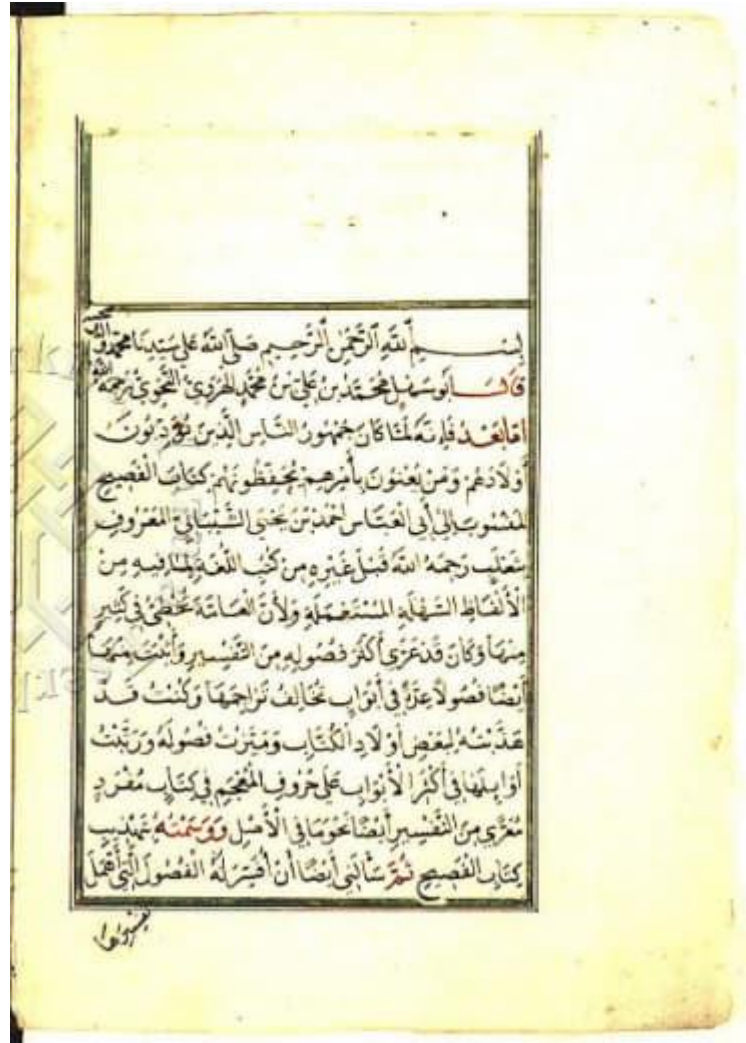 بسم الله الرحمن الرحيم صلى الله على سيدنا محمد وآله
قال أبو سهل محمد بن علي بن محمد الهروي النحوي رحمه الله
أما بعد فإنه لما كان جمهور الناس الذين يؤدبون
أولادهم ومن يعنون بأمرهم يحفظونهم كتاب الفصيح
المنسوب إلى أبي العباس أحمد بن يحيى الشيباني المعروف
بثعلب رحمه الله قبل غيره من كتب اللغة لما فيه من
الألفاظ السهلة المستعملة ولأن العامة تخطئ في كثير
منها وكان قد عرى أكثر فصوله من التفسير وأثبت منها
أيضا فصولا عدة في أبواب تخالف تراجمها وكنت قد
هذبته لبعض أولاد الكتاب وميزت فصوله ورتبت
أوايلها في أكثر الأبواب على حروف المعجم في كتاب مفرد
معرى من التفسير أيضا نحو ما في الأصل ووسمته بتهذيب
كتاب الفصيح ثم سألني أيضا أن أفسر له الفصول التي أهمل